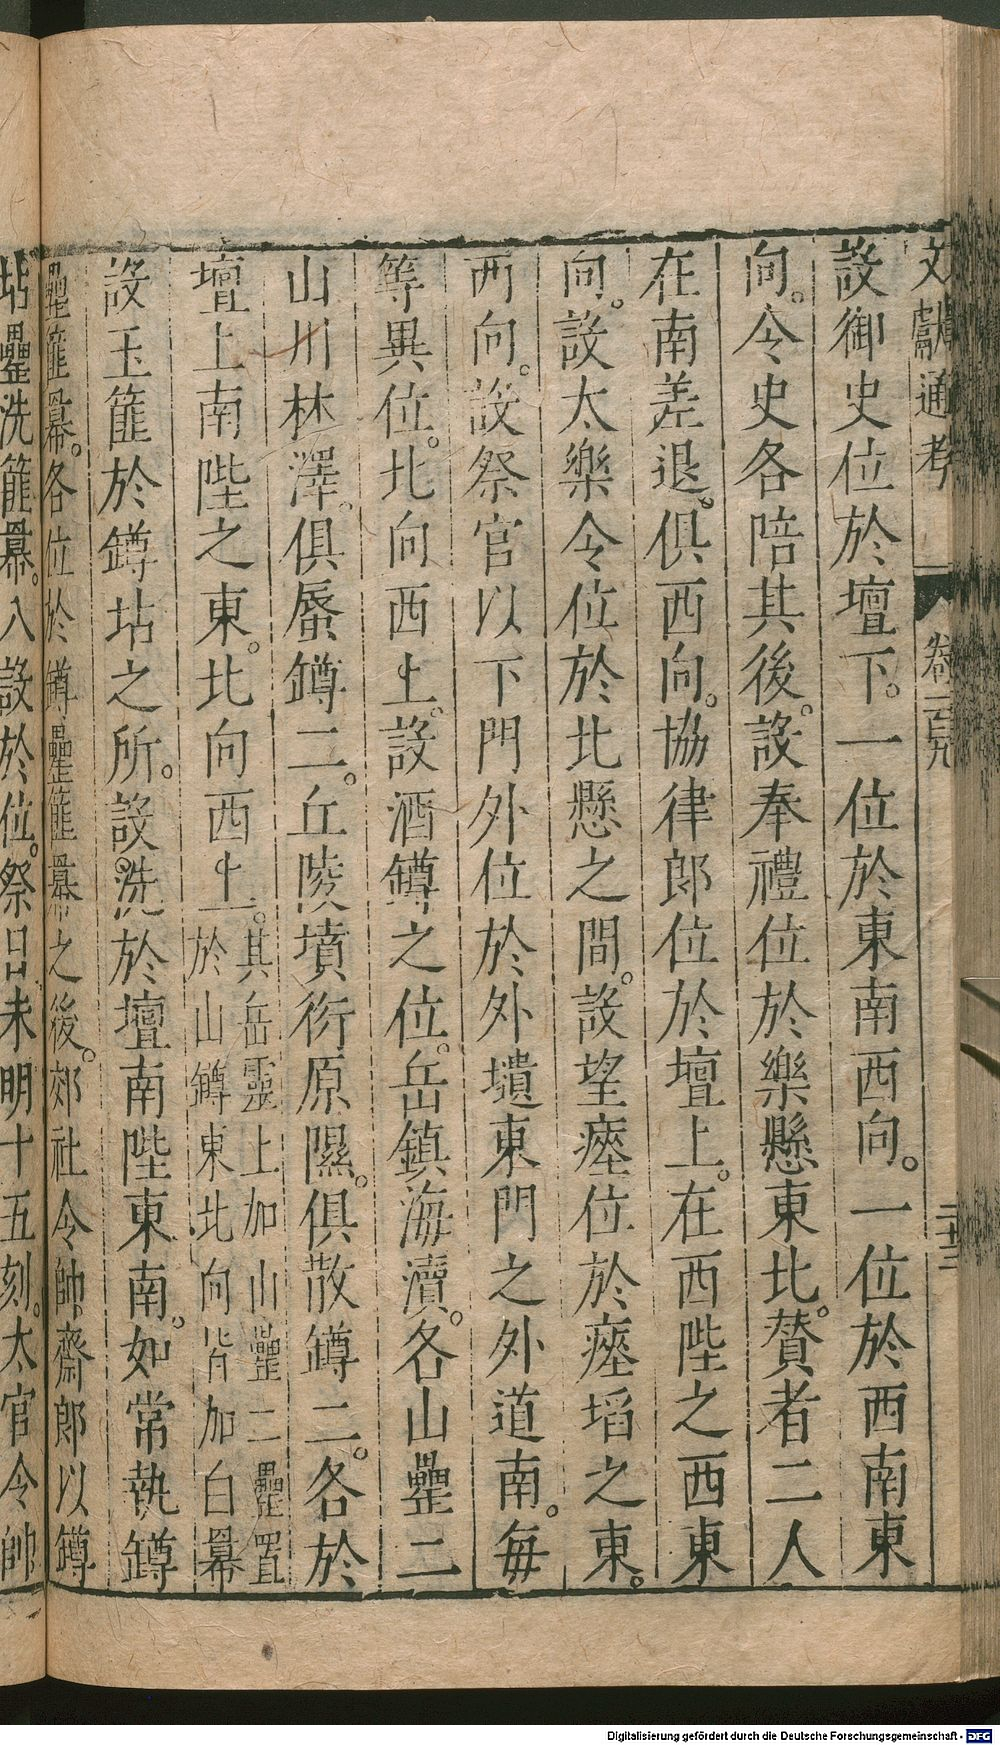 文獻通考 卷一百九 二十三
設御史位於壇下。一位於東南西向。一位於西南東
向。令史各陪其後。設奉禮位於樂懸東北。賛者二人
在南差退。俱西向。協律郎位於壇上。在西陛之西東
向。設太樂令位於北懸之間。設望瘞位於瘞埳之東。
西向。設祭官以下門外位於外壝東門之外道南。每
等異位。北向西上。設酒罇之位。岳鎮海瀆。各山罍二
山川林澤。俱蜃罇二。丘陵墳衍原隰。俱散罇二。各於
壇上南陛之東。北向西上。其岳靈上加山罍二罍置
於山罇東北向皆加白羃
設玉篚於罇坫之所。設洗於壇南陛東南。如常執罇
罍篚羃。各位於罇罍篚羃之後。郊社令帥齋郎以罇
坫罍洗篚羃。入設於位。祭日未明十五刻。太官令帥
Digitalisierung gefördert durch die Deutsche Forschungsgemeinschaft - DFG